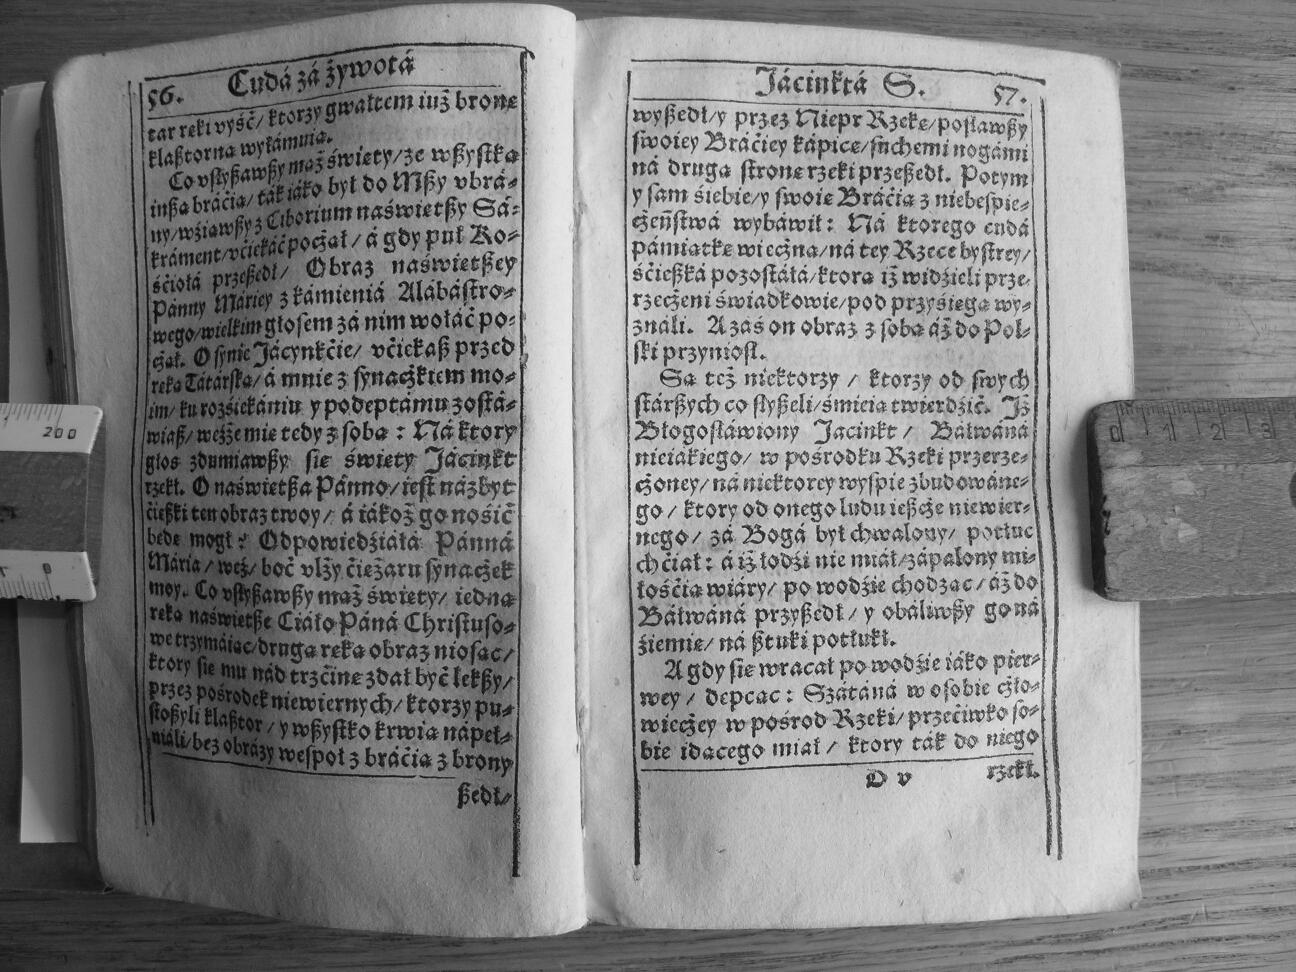 56. Cudá zá żywotá
tar ręki vyść/ ktorzy gwałtem iuż bronę
klasztorną wyłámuią.
Co vsłyszawszy mąż święty/że wszystká
insza bráćia/ ták iáko był do Mszy vbrá-
ny/wźiąwszy z Ciborium naświętszy Sá-
kráment/vćiekáć począł/ á gdy puł Ko-
śćiołá przeszedł/ Obraz naświętszey
Pánny Máriey z kámieniá Alábástro-
wego/wielkim głosem zá nim wołáć po-
czął. O synie Jácynkćie/ vćiekasz przed
ręką Tátárską/á mnie z synaczkiem mo-
im/ ku rozśiekániu y podeptániu zostá-
wiasz/ weźże mie tedy z sobą : Ná ktory
głos zdumiawszy się święty Jácinkt
rzekł. O naświętsza Pánno/iest názbyt
ćięszki ten obraz twoy/ á iákoż go nośić
będę mogł? Odpowiedźiáłá Pánná
Mária/ weź/ boć vlży ćiężaru synaczek
moy. Co vsłyszawszy mąż święty/ iedną
ręką naświętsze Ciáło Páná Christuso-
we trzymáiąc/drugą ręką obraz niosąc/
ktory się mu nád trzćinę zdał być lekszy/
przez pośrodek niewiernych/ ktorzy pu-
stoszyli klasztor/ y wszystko krwią nápeł-
niáli/bez obrázy wespoł z bráćią z brony
szedł/
Jácinktá S. 57.
wyszedł/y przez Niepr Rzekę/posławszy
swoiey Bráćiey kápicę/suchemi nogámi
ná drugą stronę rzeki przeszedł. Potym
y sam śiebie/y swoię Bráćią z niebespie-
czeństwá wybáwił: Ná ktorego cudá
pámiątkę wieczną/ná tey Rzece bystrey/
śćieszká pozostáłá/ktorą iż widźieli prze-
rzeczeni świadkowie/pod przyśięgą wy-
ználi. A zaś on obraz z sobą áż do Pol-
ski przyniosł.
Są też niektorzy / ktorzy od swych
stárszych co słyszeli/śmieią twierdźić. Iż
Błogosłáwiony Jacinkt / Báłwáná
nieiákiego/ w pośrodku Rzeki przerze-
czoney/ ná niektorey wyspie zbudowáne-
go / ktory od onego ludu ieszcze niewier-
nego/ zá Bogá był chwalony/ potłuc
chćiał: á iż łodźi nie miał/zápalony mi-
łośćią wiáry/ po wodźie chodząc/ áż do
Báłwáná przyszedł/ y obáliwszy go ná
źiemię/ ná sztuki potłukł.
A gdy się wracał po wodźie iáko pier-
wey / depcąc: Szátáná w osobie czło-
wieczey w pośrod Rzeki/ przećiwko so-
bie idącego miał / ktory ták do niego
D v rzekł.